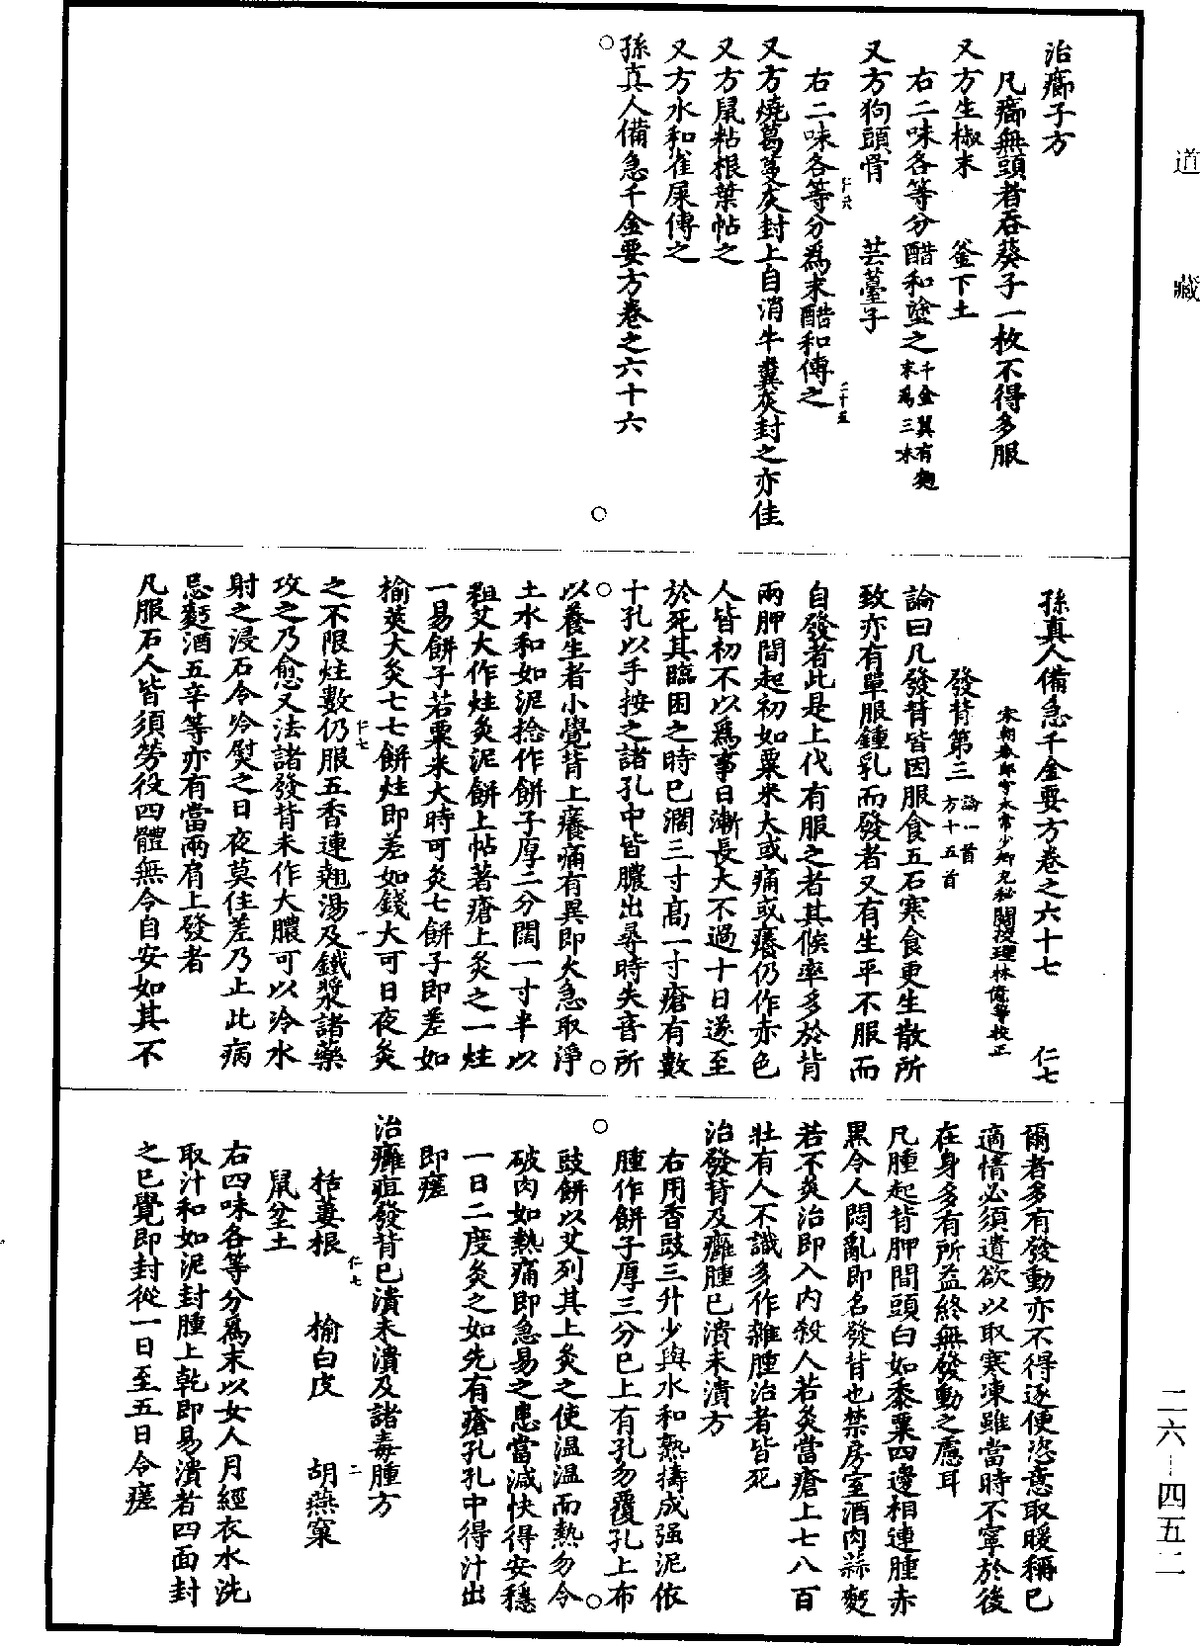 道藏
治瘤子方
凡瘤無頭者吞葵子一枚不得多服
又方生椒末　釜下土
右二味各等分醋和塗之千金翼有麴末爲三味
又方狗頭骨　芸薹子
右二味各等分爲末醋和傅之
又方燒葛蔓灰封上自消牛糞灰封之亦佳
又方鼠粘根葉帖之
又方水和雀屎傅之
孫真人備急千金要方卷之六十六
孫真人備急千金要方卷之六十七　仁七
宋朝奉郎守太常少卿充秘閣校理林億等校正
發背第三論一首方十五首
論曰凡發背皆因服食五石寒食更生散所
致亦有單服鍾乳而發者又有生平不服而
自發者此是上代有服之者其候率多於背
兩胛間起初如粟米大或痛或癢仍作赤色
人皆初不以爲事日漸長大不過十日遂至
於死其臨困之時已濶三寸高一寸瘡有數
十孔以手按之諸孔中皆膿出尋時失音所
以養生者小覺背上癢痛有異即火急取淨
土水和如泥捻作餅子厚二分闊一寸半以
粗艾大作炷灸泥餅上帖著瘡上灸之一炷
一易餅子若粟米大時可灸七餅子即差如
榆莢大灸七七餅炷即差如錢大可日夜灸
之不限炷數仍服五香連翹湯及鐵漿諸藥
仁七　一
攻之乃愈又法諸發背未作大膿可以冷水
射之浸石令冷熨之日夜莫住差乃止此病
忌麪酒五辛等亦有當兩肩上發者
凡服石人皆須勞役四體無令自安如其不
爾者多有發動亦不得逐便恣意取暖稱已
適情必須遺欲以取寒凍雖當時不寧於後
在身多有所益終無發動之慮耳
凡腫起背胛間頭白如黍粟四邊相連腫赤
黑令人悶亂即名發背也禁房室酒肉蒜麪
若不灸治即入內殺人若灸當瘡上七八百
壯有人不識多作雜腫治者皆死
治發背及癰腫已潰未潰方
右用香豉三升少與水和熟擣成强泥依
腫作餅子厚三分已上有孔勿覆孔上布
豉餅以艾列其上灸之使溫溫而熱勿令
破肉如熱痛即急易之患當減快得安穩
一日二度灸之如先有瘡孔孔中得汁出
即瘥
治癰疽發背已潰未潰及諸毒腫方
仁七　二
栝蔞根　榆白皮　胡燕窠
鼠坌土
右四味各等分爲末以女人月經衣水洗
取汁和如泥封腫上乾即易潰者四面封
之已覺即封從一日至五日令瘥
二六—四五二